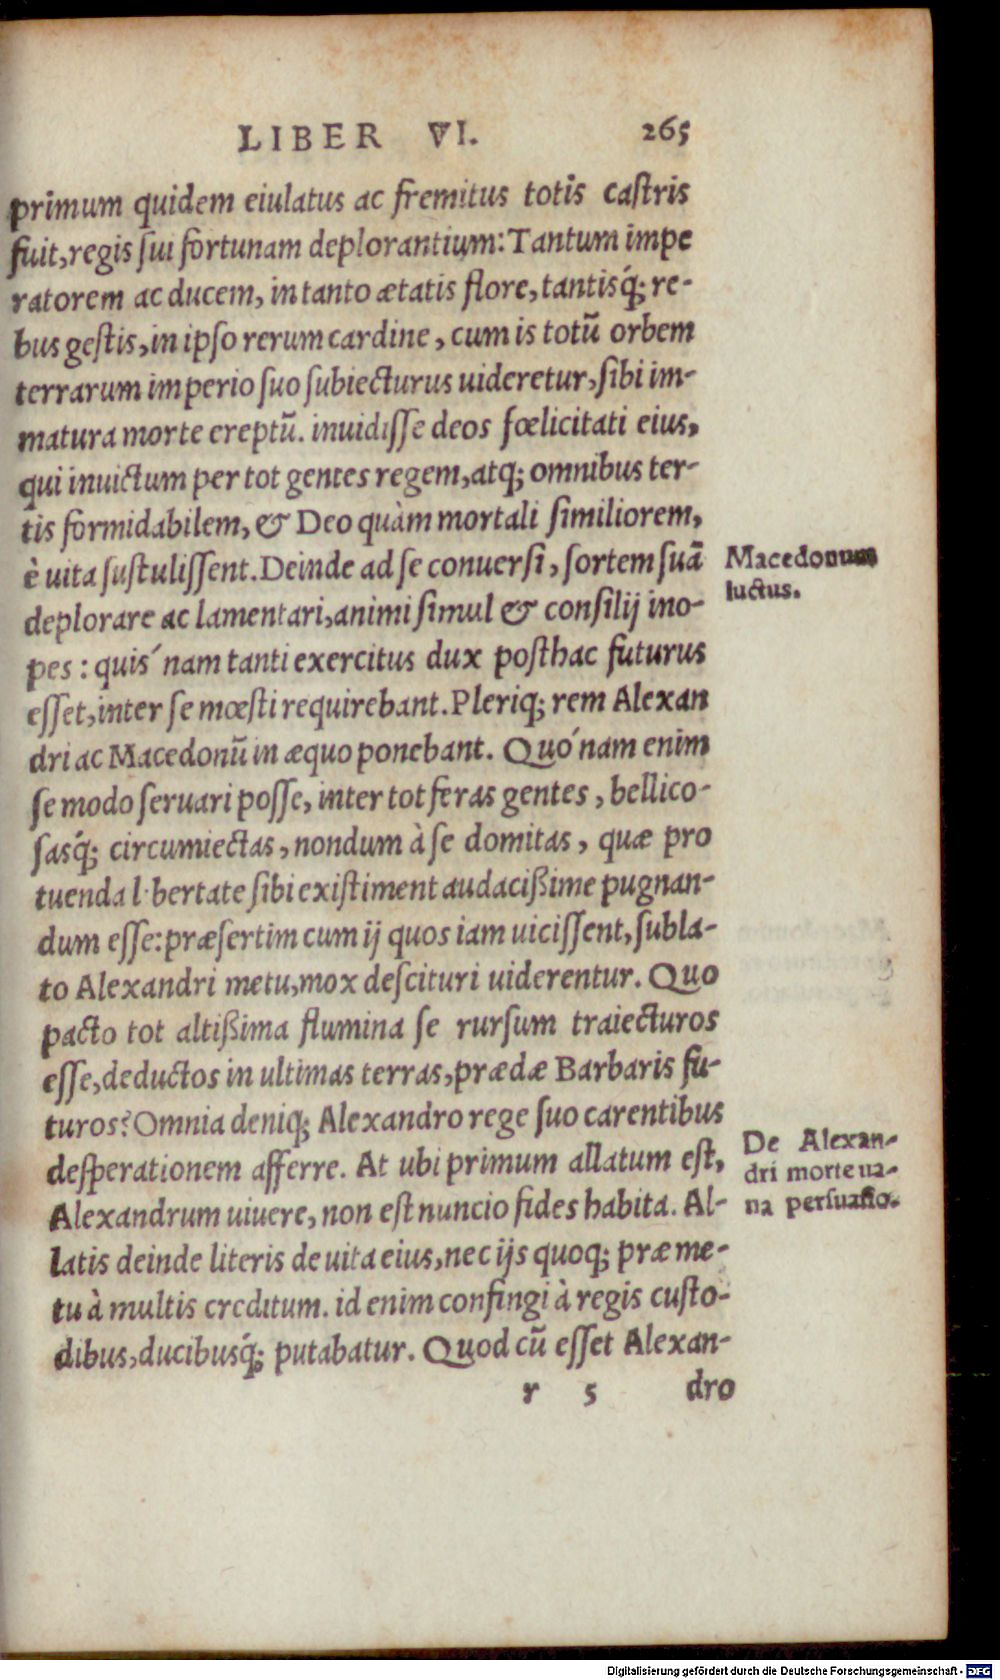 LIBER VI. 265
primum quidem eiulatus ac fremitus totis castris
fuit, regis sui fortunam deplorantium: Tantum impe
ratorem ac ducem, in tanto ætatis flore, tantisq́; re-
bus gestis, in ipso rerum cardine, cum is totũ orbem
terrarum imperio suo subiecturus uideretur, sibi im-
matura morte ereptũ. inuidisse deos fœlicitati eius,
qui inuictum per tot gentes regem, atq; omnibus ter-
tis formidabilem, & Deo quàm mortali similiorem,
è uita sustulissent. Deinde ad se conuersi, sortem suã
Macedonum
deplorare ac lamentari, animi simul & consilij ino-
luctus.
pes: quis´nam tanti exercitus dux posthac futurus
esset, inter se mœsti requirebant. Pleriq; rem Alexan
dri ac Macedonũ in æquo ponebant. Quó nam enim
se modo seruari posse, inter tot feras gentes, bellico-
sasq́; circumiectas, nondum à se domitas, quæ pro
tuenda l bertate sibi existiment audacißime pugnan-
dum esse: præsertim cum ij quos iam uicissent, subla-
to Alexandri metu, mox descituri uiderentur. Quo
pacto tot altißima flumina se rursum traiecturos
esse, deductos in ultimas terras, prædæ Barbaris fu-
turos? Omnia deniq; Alexandro rege suo carentibus
desperationem afferre. At ubi primum allatum est,
De Alexan-
dri morte ua-
na persuasio.
Alexandrum uiuere, non est nuncio fides habita. Al-
latis deinde literis de uita eius, nec ijs quoq; præ me-
tu à multis creditum. id enim confingi à regis custo-
dibus, ducibusq́; putabatur. Quod cũ esset Alexan-
r 5 dro
Digitalisierung gefördert durch die Deutsche Forschungsgemeinschaft - DFG